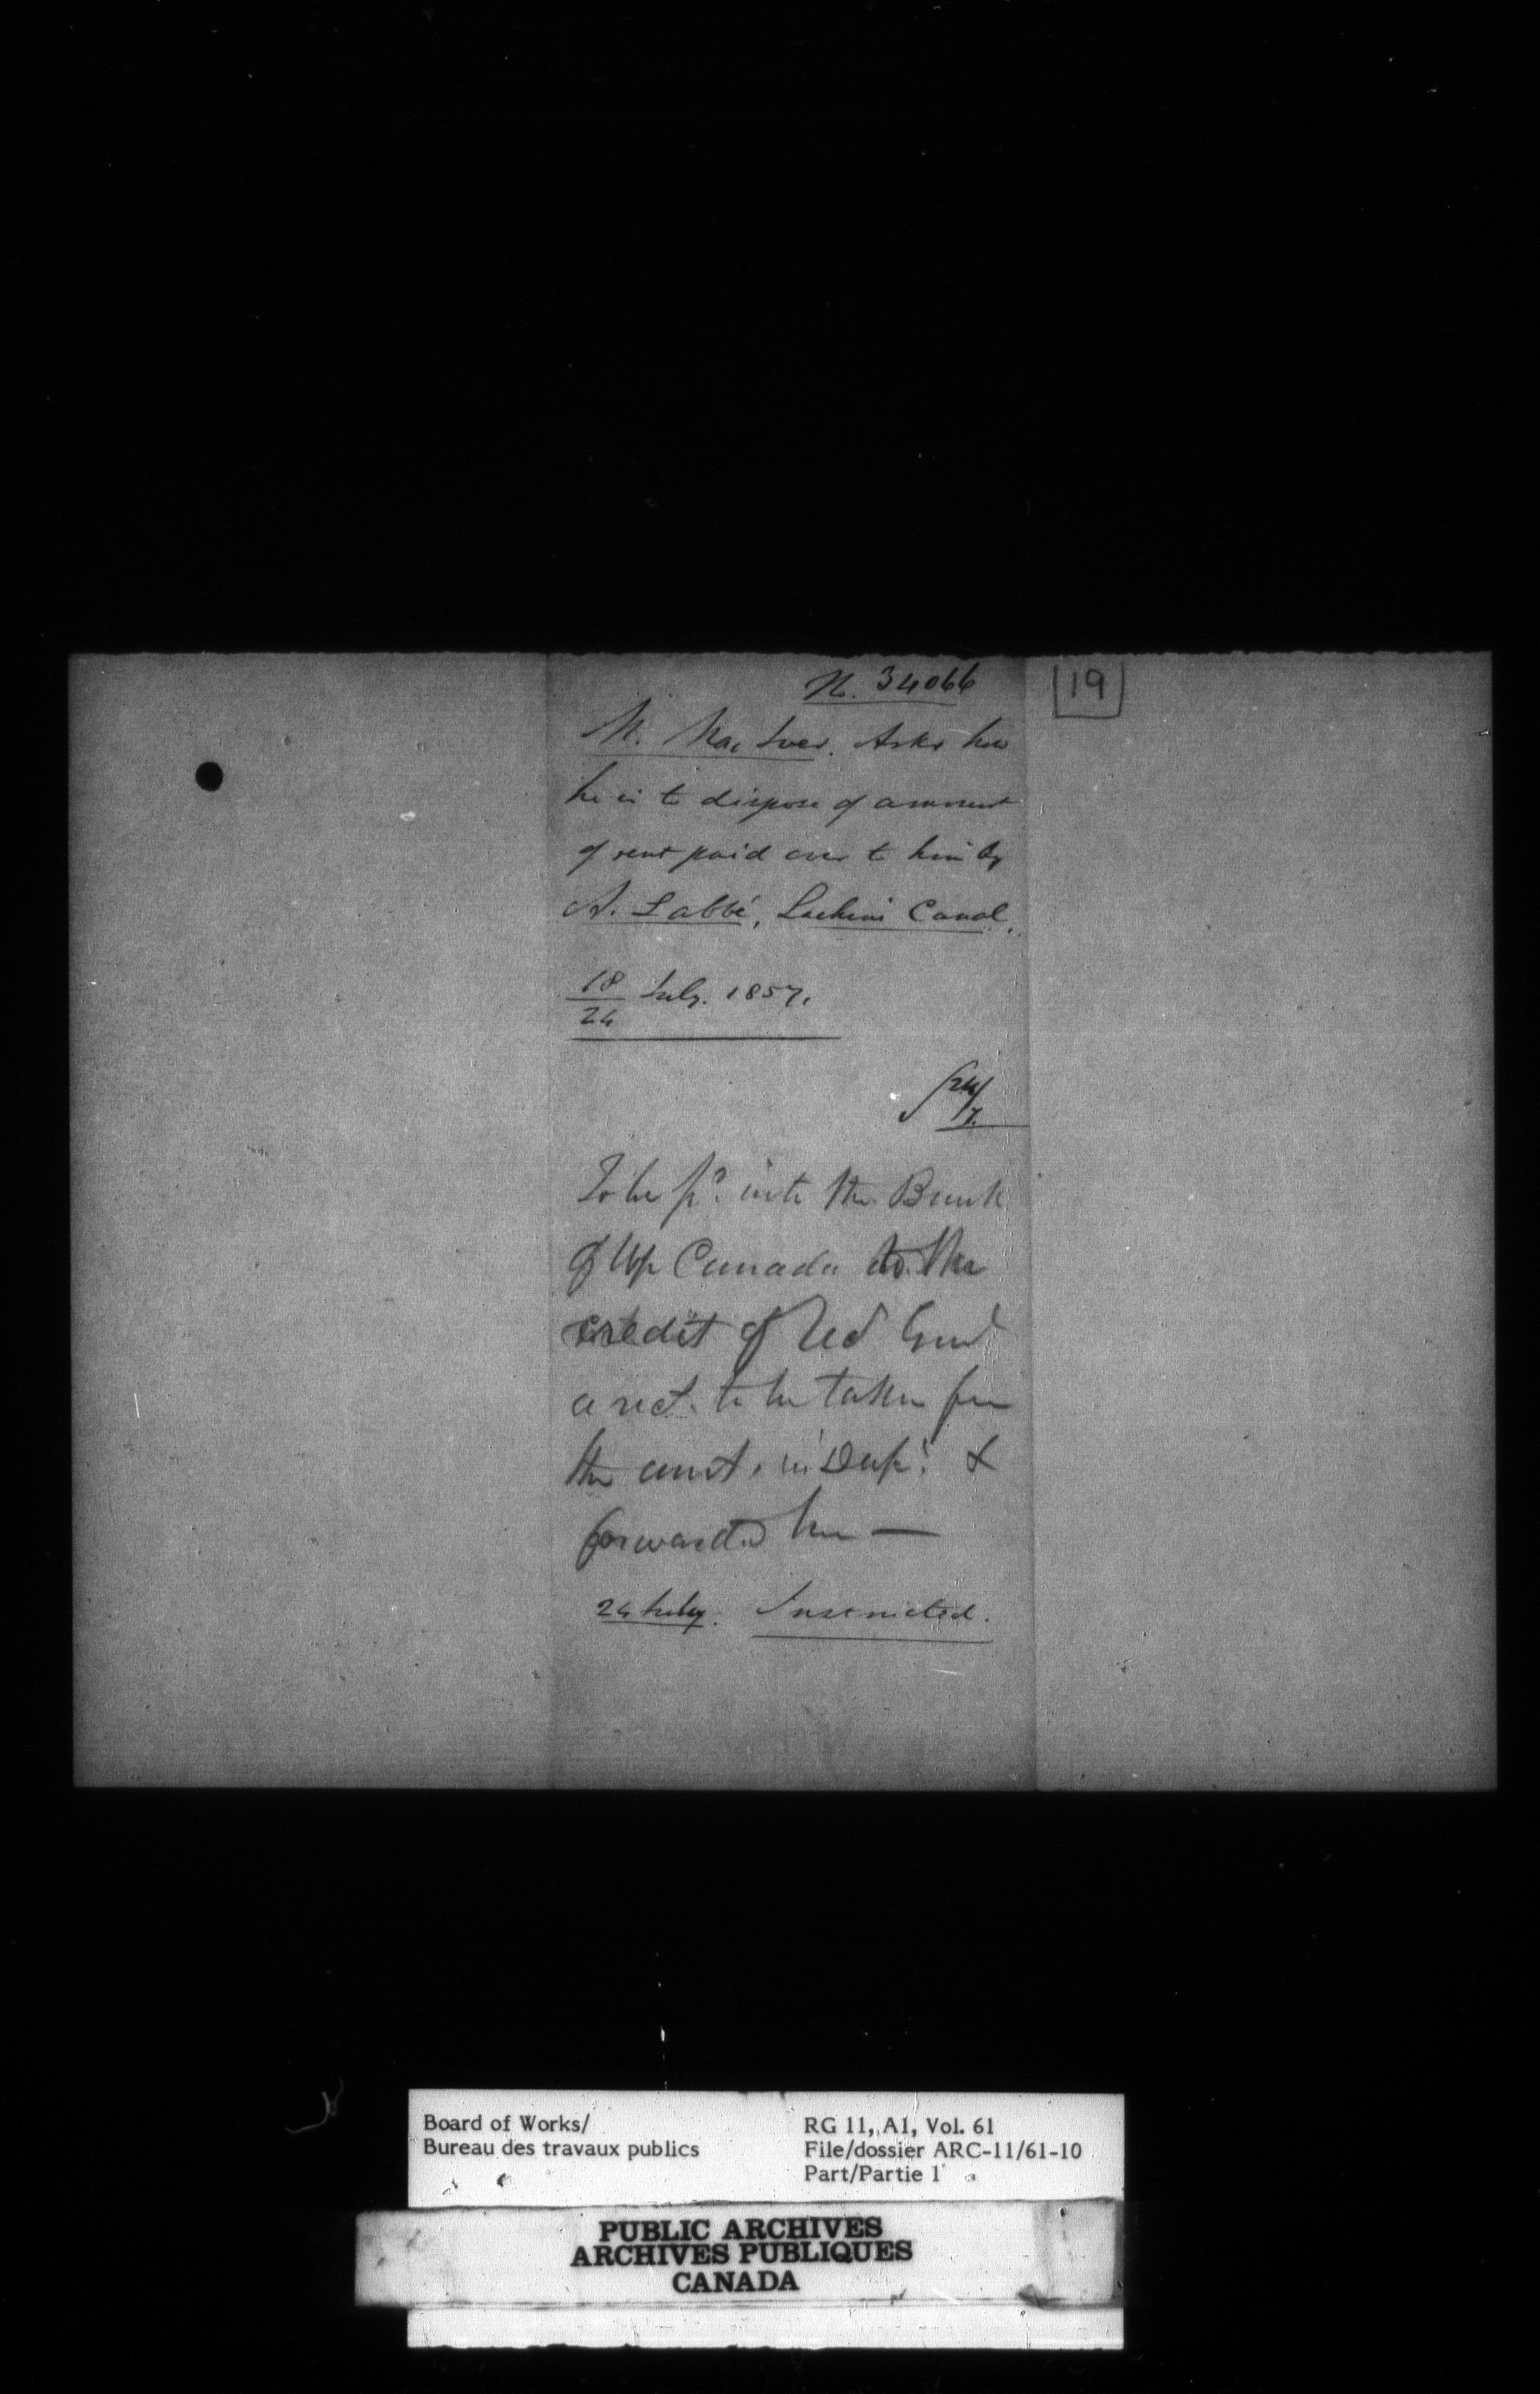 N. 34066
[19]
N. MacIver. Asks how
he is to dispose of amount
of rent paid over to him by
A. Labbé, Lachine Canal.
18/24 July. 1857.
24/7.
To be pd. into the Bank
of Up Canada to the
credit of Rec Genl
a rect. to be taken for
the amt. in Dupt. &
forwarded here —
24 July. Instructed.
Board of Works/
Bureau des travaux publics
RG 11, A1, Vol. 61
File/dossier ARC-11/61-10
Part/Partie 1
PUBLIC ARCHIVES
ARCHIVES PUBLIQUES
CANADA